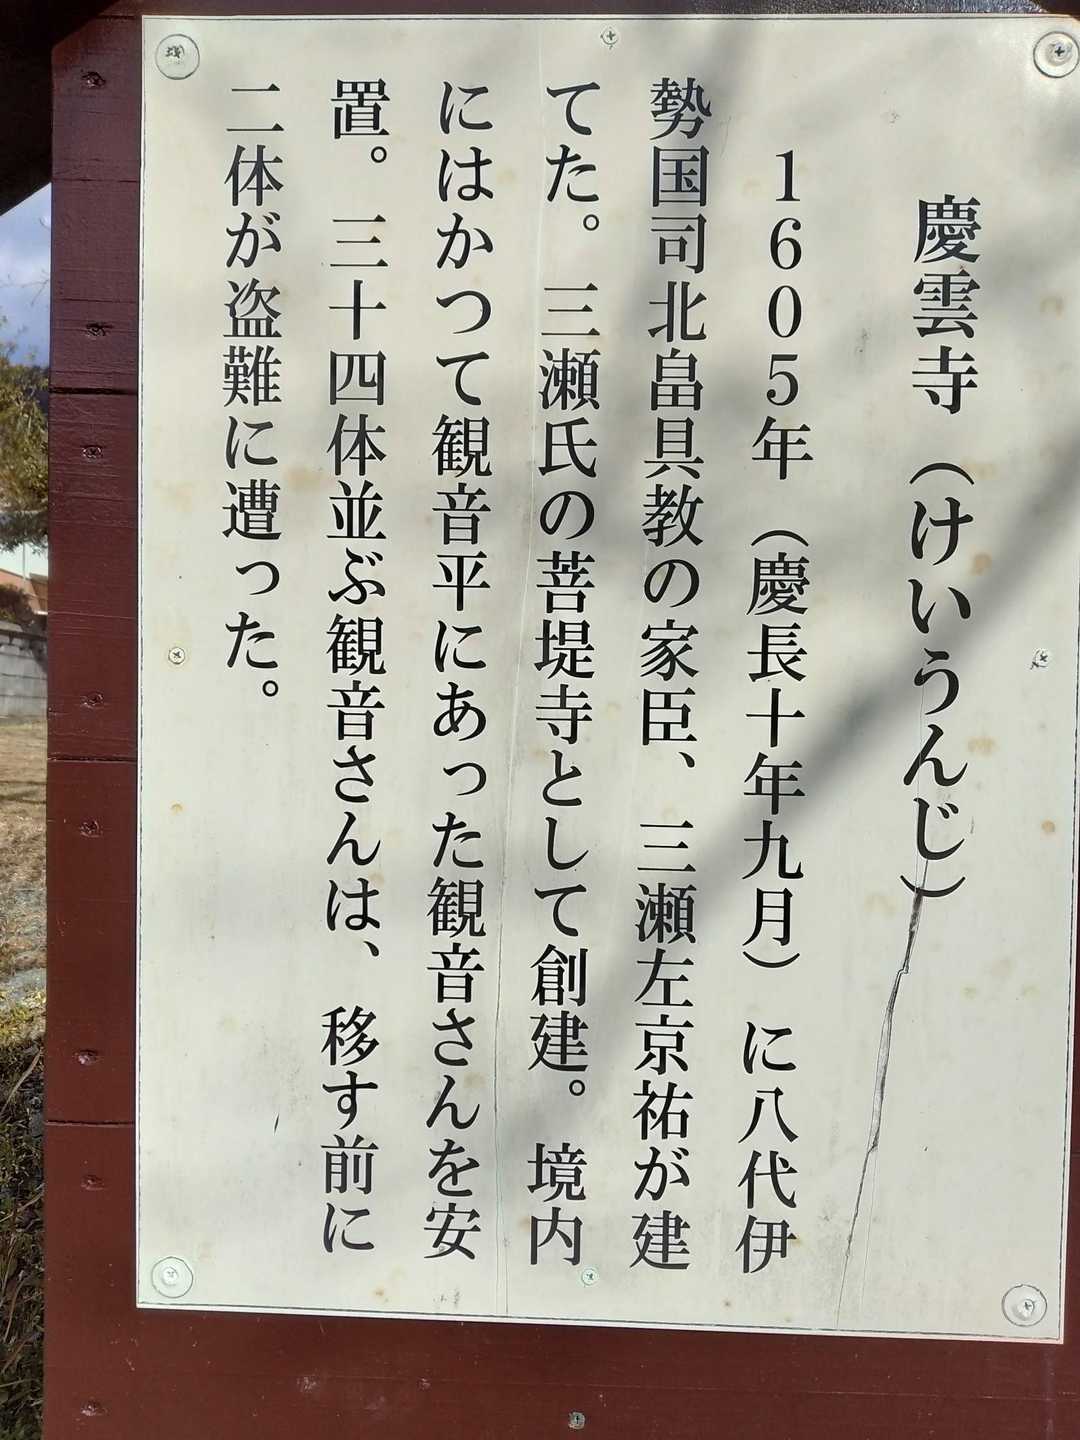 慶雲寺(けいうんじ)
1605年(慶長十年九月)に八代伊
勢国司北畠具教の家臣、三瀬左京祐が建
てた。三瀬氏の菩堤寺として創建。境内
にはかつて観音平にあった観音さんを安
置。三十四体並ぶ観音さんは、移す前に
二体が盗難に遭った。